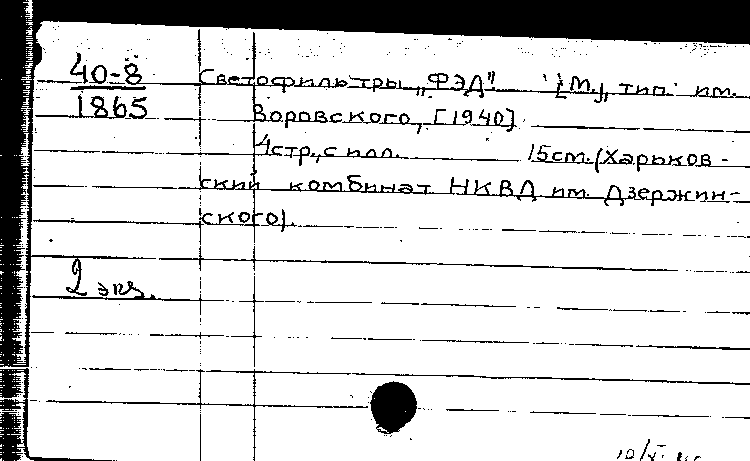 40-8
1865
Светофильтры „ФЭД". [М.], тип. им.
Воровского, [1940]
4стр., с илл. 15см. (Харьков-
ский комбинат НКВД им. Дзержин-
ского).
2 экз.